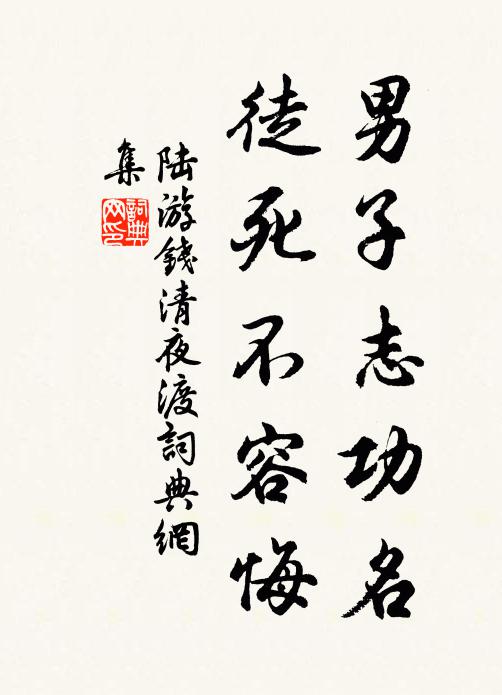 男子志功名
徒死不容悔
陆游錢清夜渡詞典網
集
詞典
网印